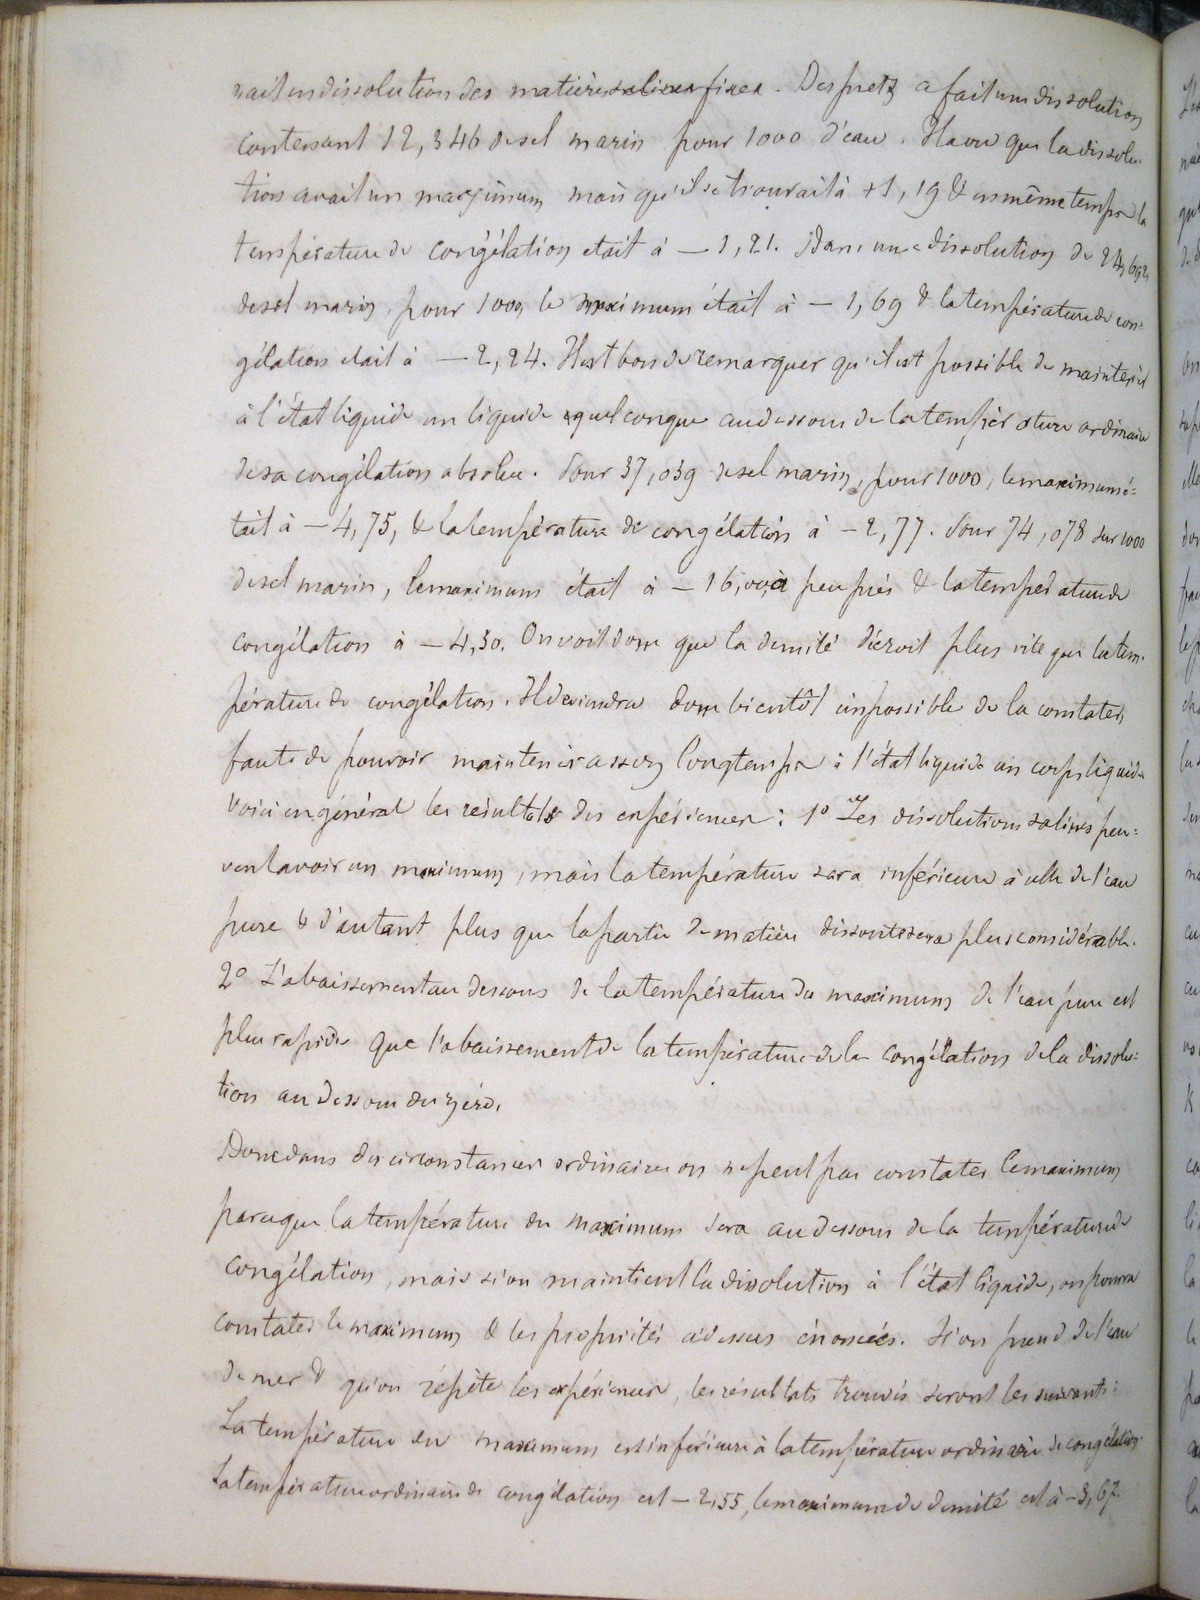 nait en dissolution des matières salines fixes. Despretz a fait une dissolution
contenant 12,346 de sel marin pour 1000 d'eau. Il a vu que la dissolu-
tion avait un maximum mais qu'il se trouvait à +1,19 & en même temps la
température de congélation était à — 1,21. Dans une dissolution de 24,692
de sel marin, pour 1000 le maximum était à — 1,69 & la température de con-
gélation était à — 2,24. Il est bon de remarquer qu'il est possible de maintenir
à l'état liquide un liquide quelconque au dessous de la température ordinaire
de sa congélation absolue. Pour 37,039 de sel marin, pour 1000, le maximum é=
tait à — 4,75, & la température de congélation à — 2,77. Pour 74,078 sur 1000
de sel marin, le maximum était à — 16,00 à peu près & la température de
congélation à — 4,30. On voit donc que la densité décroit plus vite que la tem-
pérature de congélation. Il deviendra donc bientôt impossible de la constater,
faute de pouvoir maintenir assez longtemps à l'état liquide un corps liquide
Voici en général les résultats des expériences : 1° Les dissolutions salines peu=
vent avoir un maximum, mais la température sera inférieure à celle de l'eau
pure & d'autant plus que la partie de matière dissoute sera plus considérable.
2° L'abaissement au dessous de la température du maximum de l'eau pure est
plus rapide que l'abaissement de la température de la congélation de la dissolu=
tion au dessous du zéro.
Donc dans des circonstances ordinaires on ne peut pas constater le maximum
parceque la température du maximum sera au dessous de la température de
congélation, mais si on maintient la dissolution à l'état liquide, on pourra
constater le maximum & les propriétés ci dessus énoncées. Si on prend de l'eau
de mer & qu'on répète les expériences, les résultats trouvés seront les suivants :
La température du maximum est inférieure à la température ordinaire de congélation.
La température ordinaire de congélation est — 2,55, le maximum de densité est à — 3,67.